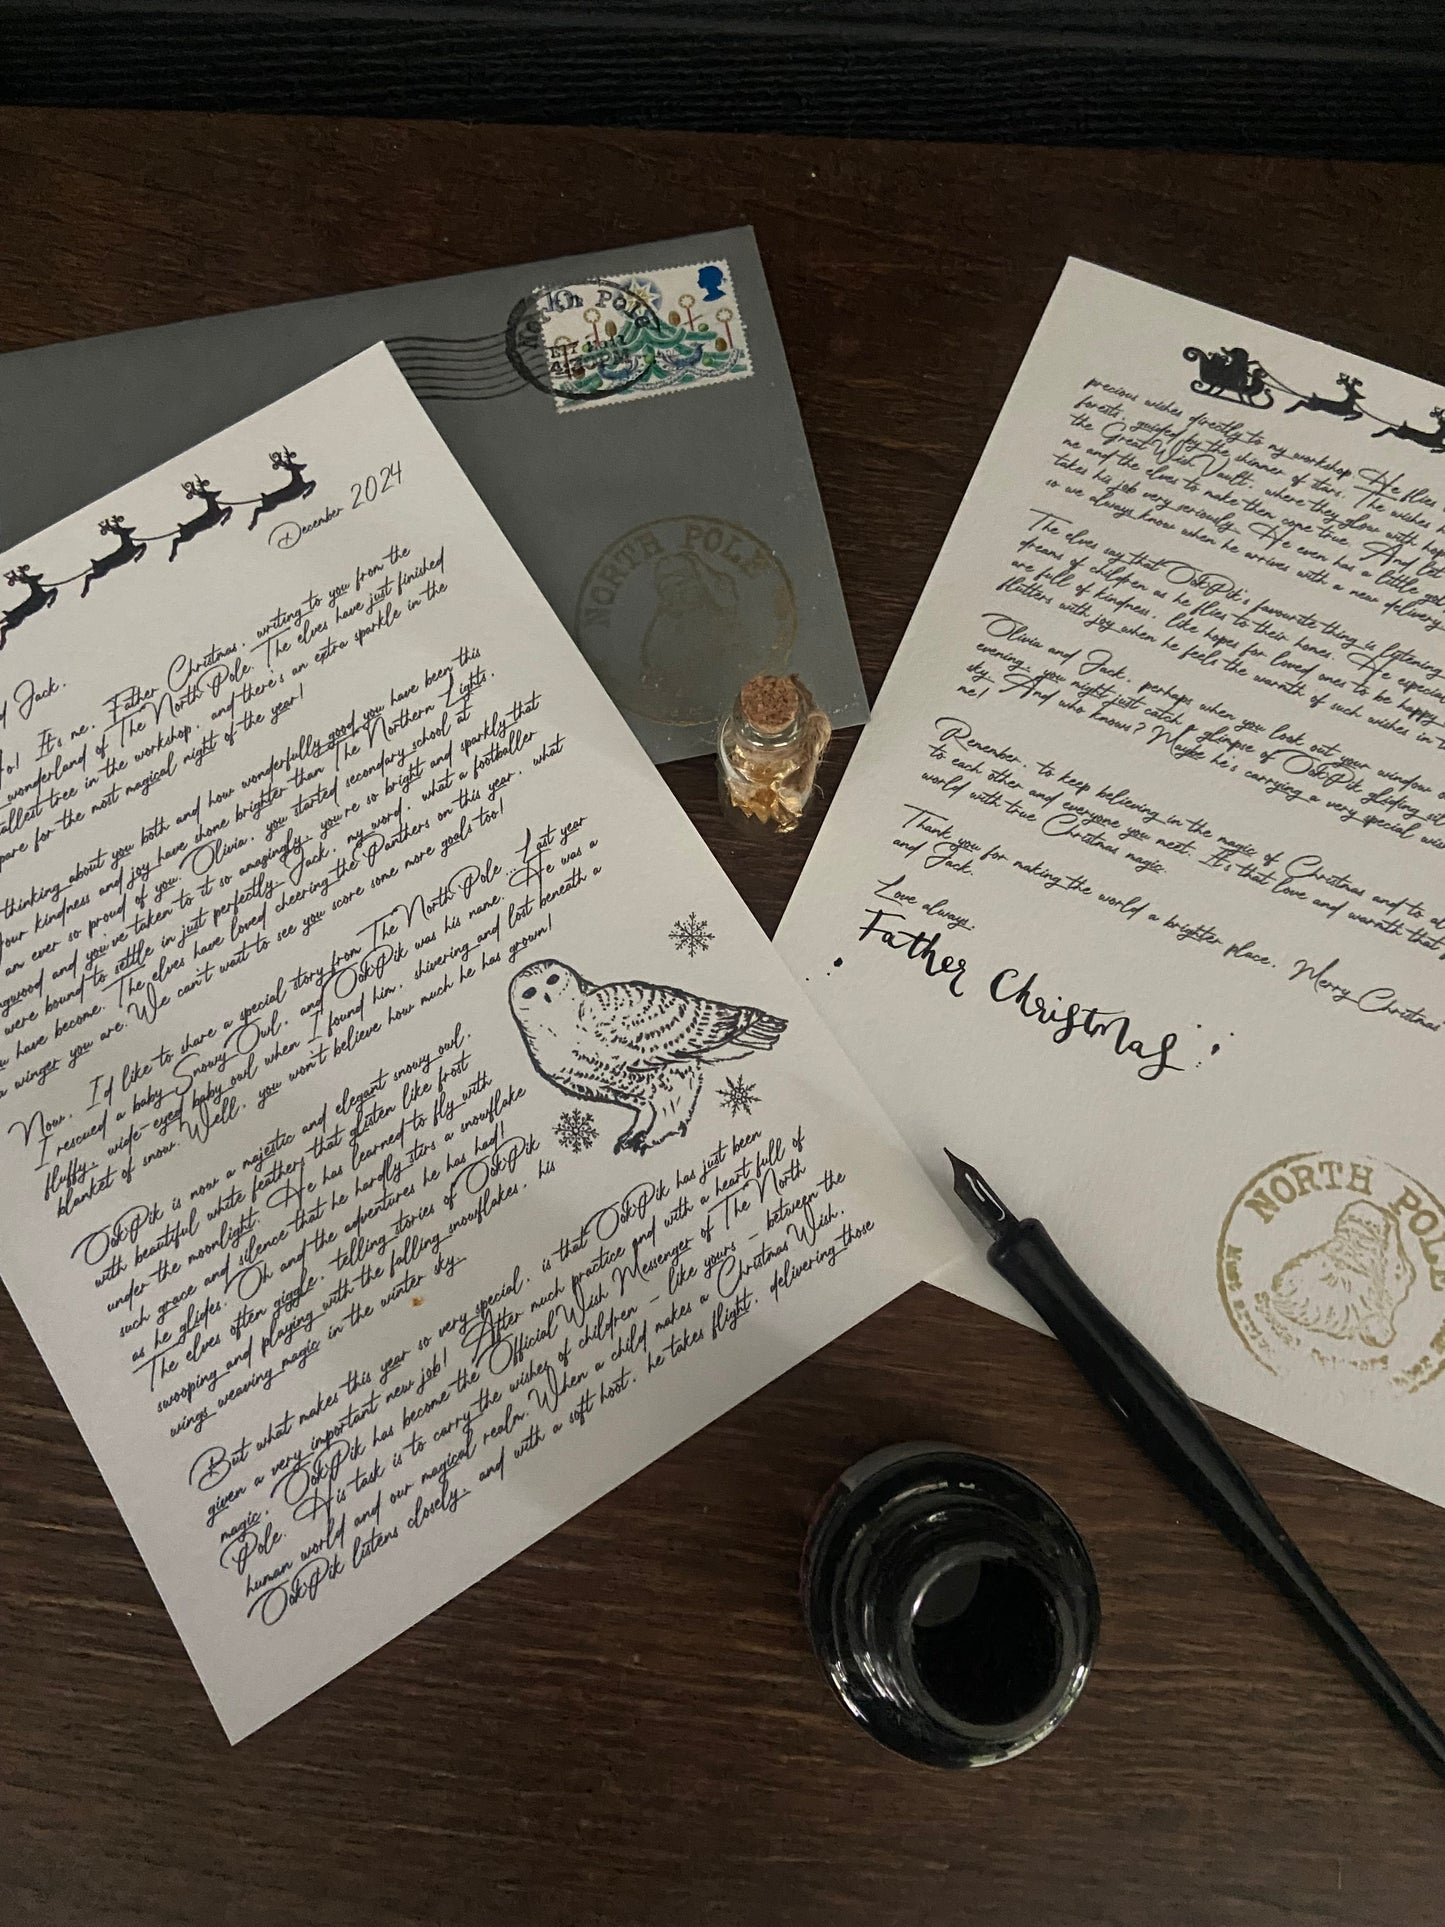 North Pole
NORTH POLE
December 2024
d Jack,
o! It's me, Father Christmas, writing to you from the
wonderland of The North Pole. The elves have just finished
allest tree in the workshop, and there's an extra sparkle in the
pare for the most magical night of the year!
thinking about you both and how wonderfully good you have been this
our kindness and joy have shone brighter than The Northern Lights.
am ever so proud of you. Olivia, you started secondary school at
ngwood and you've taken to it so amazingly, you're so bright and sparkly that
were bound to settle in just perfectly. Jack, my word, what a footballer
u have become. The elves have loved cheering the Panthers on this year, what
a winger you are. We can't wait to see you score some more goals too!
Now, I'd like to share a special story from The North Pole... Last year
I rescued a baby Snowy Owl, and OokPik was his name. He was a
fluffy, wide-eyed baby owl when I found him, shivering and lost beneath a
blanket of snow. Well, you won't believe how much he has grown!
OokPik is now a majestic and elegant snowy owl,
with beautiful white feathers that glisten like frost
under the moonlight. He has learned to fly with
such grace and silence that he hardly stirs a snowflake
as he glides. Oh and the adventures he has had!
The elves often giggle, telling stories of OokPik
swooping and playing with the falling snowflakes, his
wings weaving magic in the winter sky.
But what makes this year so very special, is that OokPik has just been
given a very important new job! After much practice and with a heart full of
magic, OokPik has become the Official Wish Messenger of The North
Pole. His task is to carry the wishes of children - like yours - between the
human world and our magical realm. When a child makes a Christmas Wish,
OokPik listens closely, and with a soft hoot, he takes flight, delivering those
precious wishes directly to my workshop. He flies
forests, guided by the shimmer of stars. The wishes
the Great Wish Vault, where they glow with hop
me and the elves to make them come true. And let
takes his job very seriously. He even has a little gol
so we always know when he arrives with a new delivery
The elves say that OokPik's favourite thing is listening
dreams of children as he flies to their homes. He especial
are full of kindness, like hopes for loved ones to be happy
flutters with joy when he feels the warmth of such wishes in t
Olivia and Jack, perhaps when you look out your window
evening, you might just catch a glimpse of OokPik gliding
sky. And who knows? Maybe he's carrying a very special wis
me!
Remember, to keep believing in the magic of Christmas and to
to each other and everyone you meet. It's that love and warmth that
world with true Christmas magic.
Thank you for making the world a brighter place. Merry Christmas
and Jack.
Love always,
Father Christmas
NORTH POLE